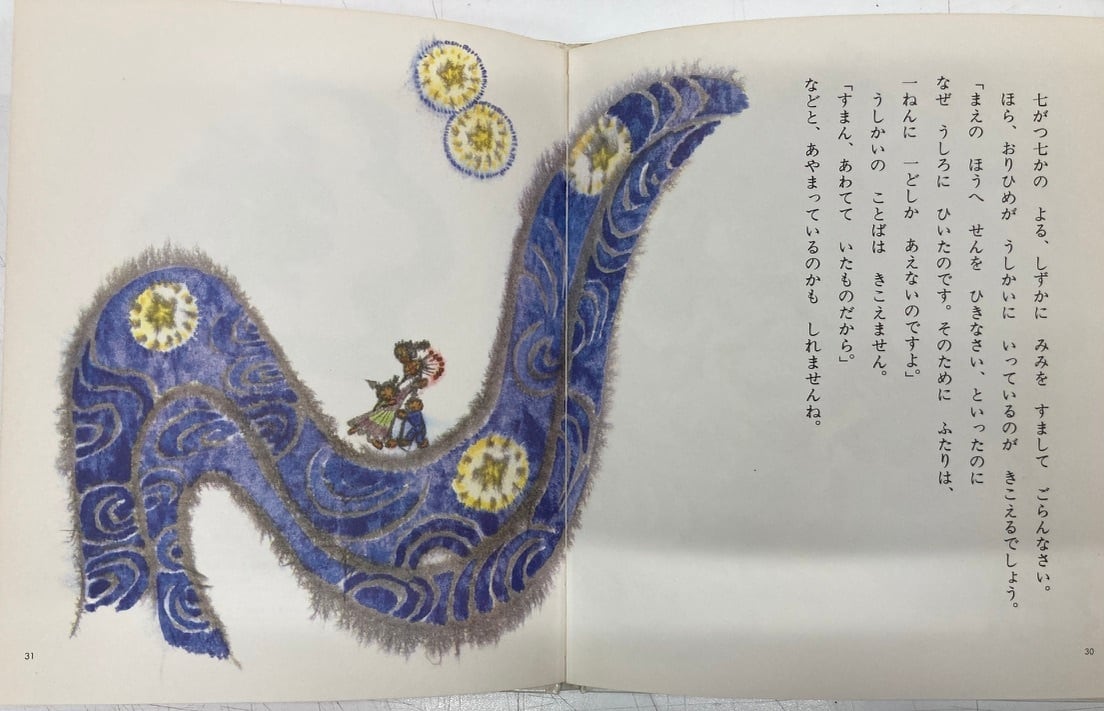 七がつ七かの よる、しずかに みみを すまして ごらんなさい。
ほら、おりひめが うしかいに いっているのが きこえるでしょう。
「まえの ほうへ せんを ひきなさい、といったのに
なぜ うしろに ひいたのです。そのために ふたりは、
一ねんに 一どしか あえないのですよ。」
うしかいの ことばは きこえません。
「すまん、あわてて いたものだから。」
などと、あやまっているのかも しれませんね。
30
31